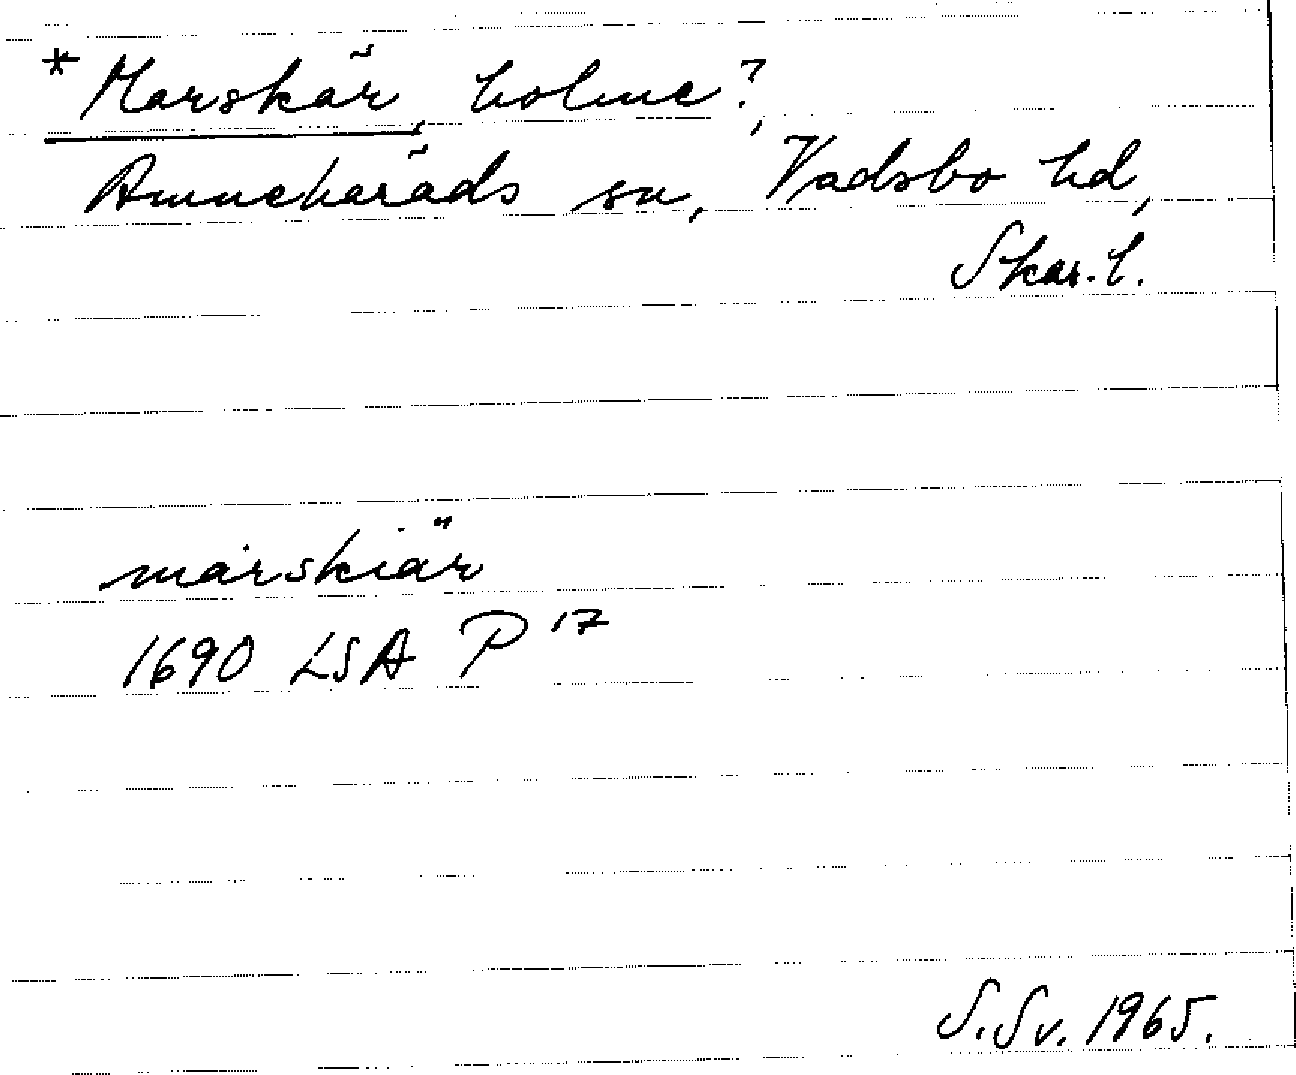 *Marskär, holme?,
Amnehärads sn, Vadsbo hd,
Skar. l.
marskiär
1690 LSA P 17
S. Sv. 1965.